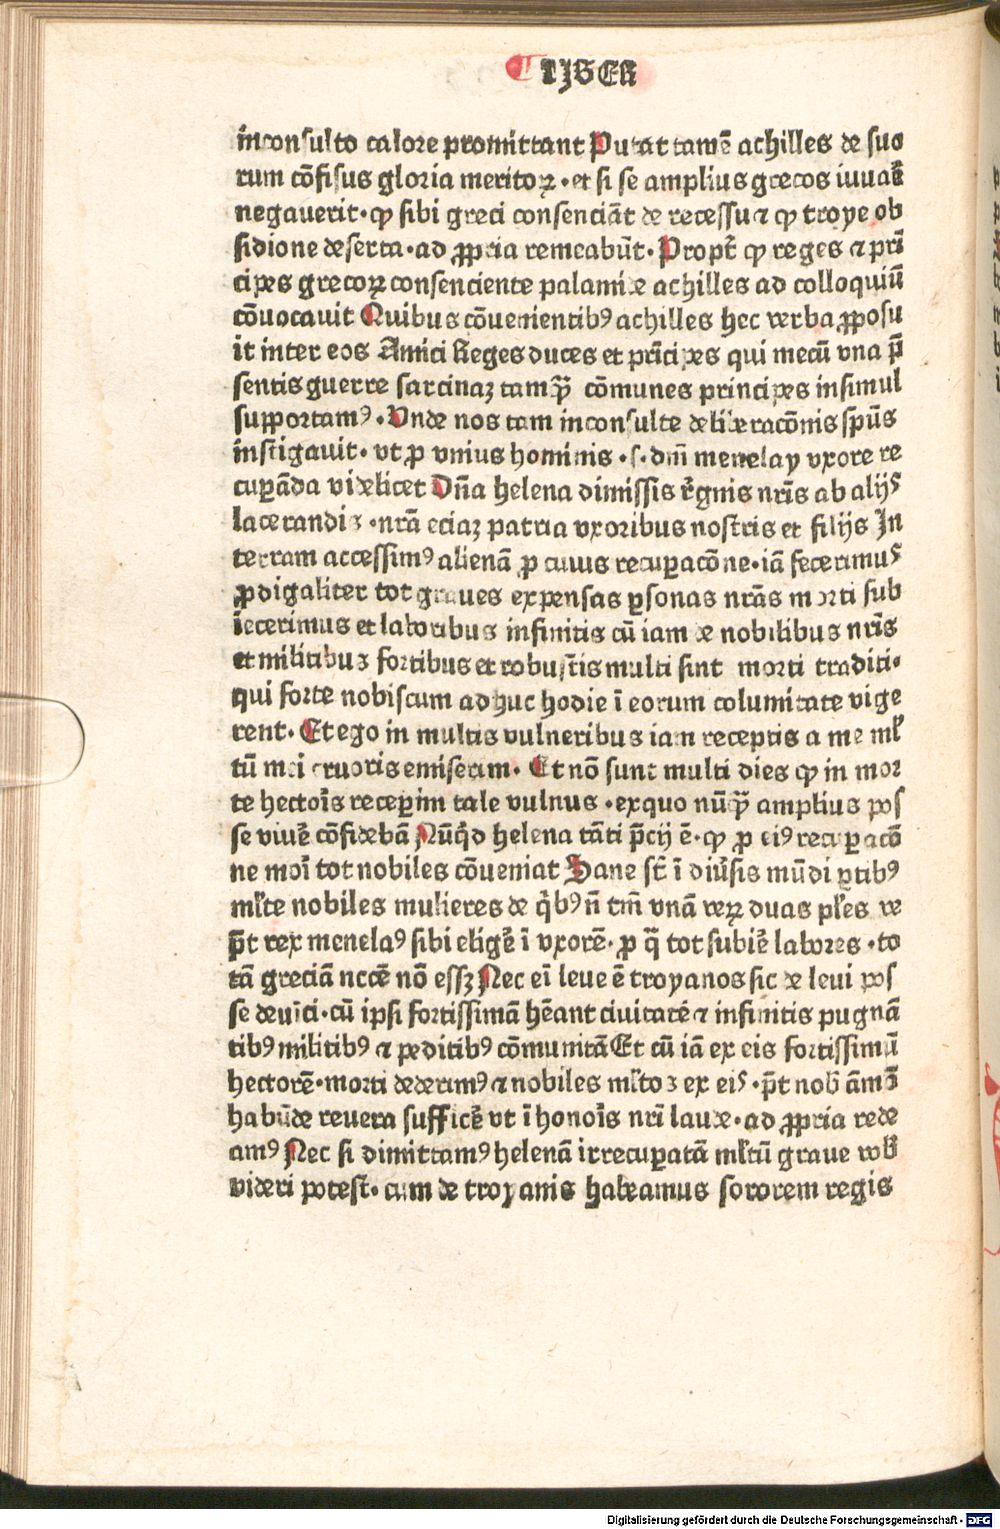 LIBER
inconsulto calore promittant Putat tamē achilles de suo
rum cōfisus gloria meritoꝝ · et si se amplius grecos iuuar̄
negauerit · ꝙ sibi greci consenciāt de recessu ⁊ ꝙ troye ob
sidione deserta · ad ꝓpria remeabūt · Propt̄ ꝙ reges ⁊ prī
cipes grecoꝝ consenciente palamide achilles ad colloquiū
cōuocauit Quibus cōuenientibꝰ achilles hec verba ꝓposu
it inter eos Amici Reges duces et prīcipes qui mecū vna p̄
sentis guerre sarcinaꝫ tamꝙ̄ cōmunes principes insimul
supportamꝰ · Unde nos tam inconsulte deliberacōnis spūs
instigauit · vt ꝓ vnius hominis · s · dn̄i menelay vxore re
cuꝑāda videlicet Dn̄a helena dimissis rēgnis nr̄is ab alijs
lacerandis · nrā eciaꝫ patria vxoribus nostris et filijs In
terram accessimꝰ alienā ꝓ cuius recuꝑacōne · iā fecerimus
ꝓdigaliter tot graues expensas ꝑsonas nrās morti sub
iecerimus et laboribus infinitis cū iam de nobilibus nr̄is
et militibus fortibus et robustis multi sint morti traditi ·
qui forte nobiscum ad huc hodie ī eorum columitate vige
rent · Et ego in multis vulneribus iam receptis a me ml̄
tū mei cruoris emiserim · Et nō sunt multi dies ꝙ in mor
te hectoīs receꝑim tale vulnus · ex quo nūꝙ̄ amplius pos
se viuē cōfidebā Nūqd helena tāti p̄cij ē · ꝙ ꝓ eiꝰ recuꝑacō
ne morī tot nobiles cōueniat Sane st̄ ī diūsis mūdi ꝑtibꝰ
ml̄te nobiles mulieres de qibꝰ n̄ tm̄ vnā veꝝ duas pl̄es ve
p̄t rex menelaꝰ sibi eligē ī vxorē · ꝓ q̄ tot subiē labores · to
tā greciā nccē nō essꝫ Nec eī leue ē troyanos sic de leui pos
se deuīci · cū ipsi fortissimā hēant ciuitatē ⁊ infinitis pugnā
tibꝰ militibꝰ ⁊ peditibꝰ cōmunitā Et cū iā ex eis fortissimū
hectorē · morti dederimꝰ ⁊ nobiles ml̄tos ex eis · p̄t nob̄ āmō
habūde reuera sufficē vt ī honoīs nr̄i laude · ad ꝓpria rede
amꝰ Nec si dimittamꝰ helenā irrecuꝑatā ml̄tū graue vob̄
videri potest · cum de troyanis habeamus sororem regis
Digitalisierung gefördert durch die Deutsche Forschungsgemeinschaft - DFG